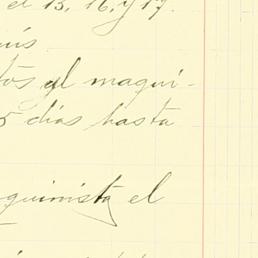 el 15, 16, y 17.
tos al maqui-
5 días hasta
quinista el